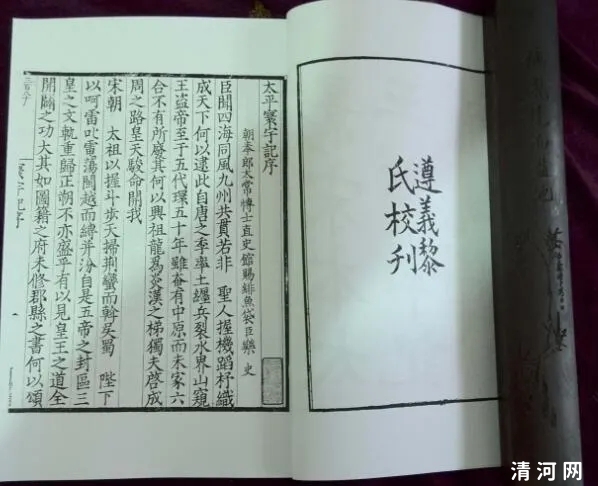 遵義黎
氏校刊
太平寰宇記序
朝奉郎太常博士直史館賜緋魚袋臣樂史
臣聞四海同風九州共貫若非　聖人握機蹈杼織
成天下何以逮此自唐之季率土纏兵裂水界山窺
王盜帝至于五代環五十年雖奄有中原而未家六
合不有所廢其何以興祖龍為炎漢之梯獨夫啓成
周之路皇天駿命開我
宋朝　太祖以握斗步天掃荆蠻而斡吳蜀　陛下
以呵雷叱電蕩閩越而縛并汾自是五帝之封區三
皇之文軌重歸正朔不亦盛乎有以見皇王之道全
開闢之功大其如圖籍之府未修郡縣之書何以頌
寰宇記序
清河网